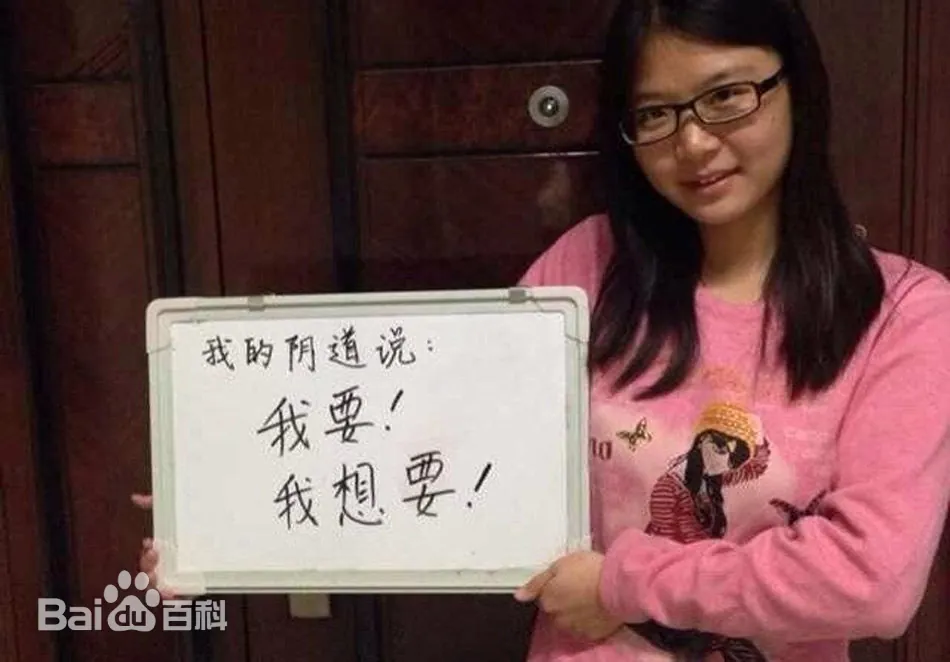 我的阴道说:
我要!
我想要!
Bai du 百科